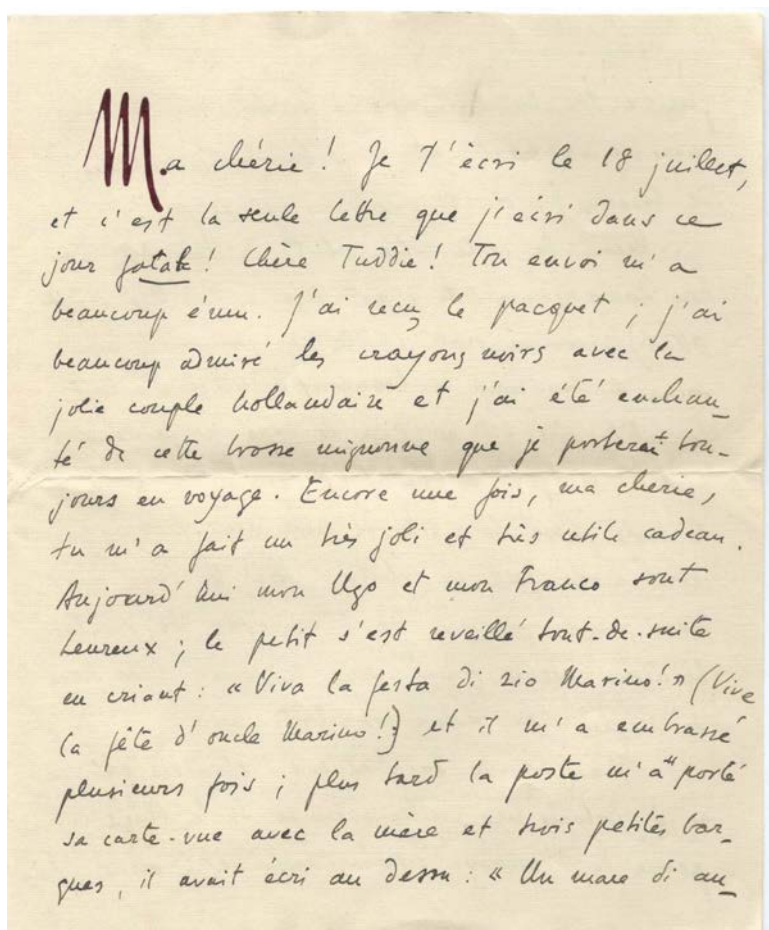 Ma chérie! Je t'écri le 18 juillet,
et c'est la seule lettre que j'écri dans ce
jour fatale! Chère Tuddie! Ton envoi m'a
beaucoup ému. J'ai reçu le pacquet; j'ai
beaucoup admiré les crayons noirs avec la
jolie couple hollandaise et j'ai été enchan-
té de cette brosse mignonne que je porterai tou-
jours en voyage. Encore une fois, ma cherie,
tu m'a fait un très joli et très utile cadeau.
Aujourd'hui mon Ugo et mon Franco sont
heureux; le petit s'est reveillé tout-de-suite
en criant: «Viva la festa di zio Marino!» (Vive
la fête d'oncle Marino!) et il m'a embrassé
plusieurs fois; plus tard la poste m'a porté
sa carte-vue avec la mère et trois petites bar-
ques, il avait écri au dessu: «Un mare di au-